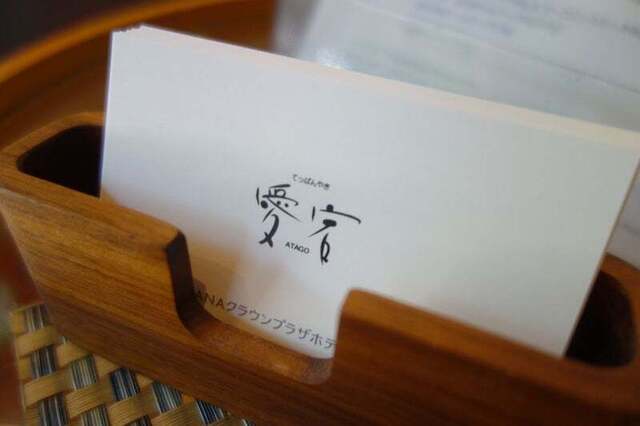 てっぱんやき
愛宕
ATAGO
ANAクラウンプラザホテ